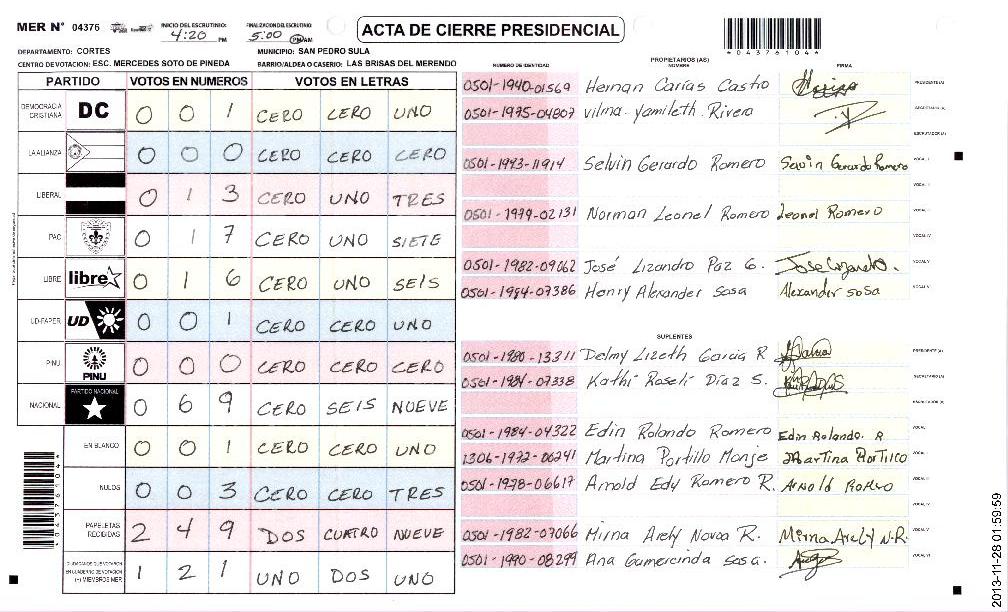 MER N° 04376
INICIO DEL ESCRUTINIO
4:20 PM
FINALIZACION DEL ESCRUTINIO
5:00 PM AM
ACTA DE CIERRE PRESIDENCIAL
*04376104*
DEPARTAMENTO: CORTES
MUNICIPIO: SAN PEDRO SULA
CENTRO DE VOTACION: ESC. MERCEDES SOTO DE PINEDA
BARRIO/ALDEA O CASERIO: LAS BRISAS DEL MERENDO
PARTIDO VOTOS EN NUMEROS VOTOS EN LETRAS
DEMOCRACIA CRISTIANA DC 0 0 1 CERO CERO UNO
LA ALIANZA 0 0 0 CERO CERO CERO
LIBERAL 0 1 3 CERO UNO TRES
PAC 0 1 7 CERO UNO SIETE
LIBRE libre 0 1 6 CERO UNO SEIS
UD-FAPER UD 0 0 1 CERO CERO UNO
PINU PINU 0 0 0 CERO CERO CERO
NACIONAL PARTIDO NACIONAL 0 6 9 CERO SEIS NUEVE
EN BLANCO 0 0 1 CERO CERO UNO
NULOS 0 0 3 CERO CERO TRES
PAPELETAS RECIBIDAS 2 4 9 DOS CUATRO NUEVE
CIUDADANOS QUE VOTARON EN CUADERNO DE VOTACION (+) MIEMBROS MER 1 2 1 UNO DOS UNO
*04376104*
PROPIETARIOS (AS)
NUMERO DE IDENTIDAD NOMBRE FIRMA
0501-1940-01569 Hernan Carías Castro PRESIDENTE (A)
0501-1975-04807 Vilma Yamileth Rivera SECRETARIO (A)
ESCRUTADOR (A)
0501-1973-11914 Selvin Gerardo Romero Selvin Gerardo Romero VOCAL I
VOCAL II
0501-1979-02131 Norman Leonel Romero Leonel Romero VOCAL III
VOCAL IV
0501-1982-09062 José Lizandro Paz G. Jose Lizandro. VOCAL V
0501-1984-07386 Henry Alexander Sosa Alexander sosa VOCAL VI
SUPLENTES
0501-1980-13311 Delmy Lizeth Garcia R PRESIDENTE (A)
0501-1984-07338 Kathi Roseli Díaz S. SECRETARIO (A)
ESCRUTADOR (A)
0501-1984-04322 Edin Rolando Romero Edin Rolando. R VOCAL I
1306-1972-00241 Martina Portillo Monje Martina Portillo VOCAL II
0501-1978-06617 Arnold Edy Romero R. Arnold VOCAL III
VOCAL IV
0501-1982-07066 Mirna Arely Novoa R. Mirna Arely N.R. VOCAL V
0501-1990-08299 Ana Gumercinda sosa. VOCAL VI
2013-11-28 01:59:59